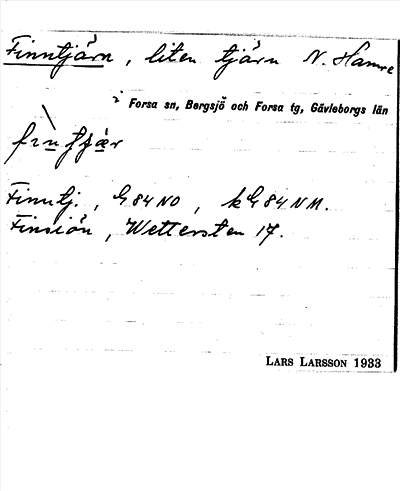 Finntjärn, liten tjärn N. Hamre
i Forsa sn, Bergsjö och Forsa tg, Gävleborgs län
Finntj., G84NO, kG84NM.
Finnsiön, Wettersten 17.
LARS LARSSON 1933